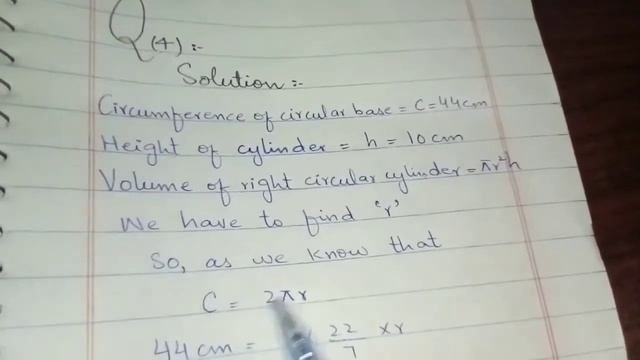 Q(4):-
Solution:-
Circumference of circular base = C = 44cm
Height of cylinder = h = 10 cm
Volume of right circular cylinder = πr²h
We have to find 'r'
So, as we know that
C = 2πr
44 cm = 22/7 × r